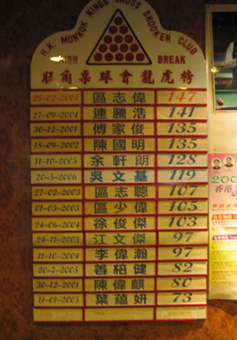 H.K. MONKOK KINGS CROSS SNOOKER CLUB
HIGH BREAK
旺角桌球會龍虎榜
25-02-2004 區志偉 147
27-09-2004 連騰浩 141
30-12-2001 傅家俊 135
18-09-2002 陳國明 135
11-10-2005 余軒朗 128
20-3-2006 吳文基 119
27-02-2003 區志聰 107
01-03-2003 區少偉 105
24-06-2004 徐俊傑 103
24-11-2003 江文傑 97
11-10-2004 李偉瀚 97
20-2-2005 82
30-12-2001 陳偉麒 80
11-01-2005 葉蘊妍 73
200
香港